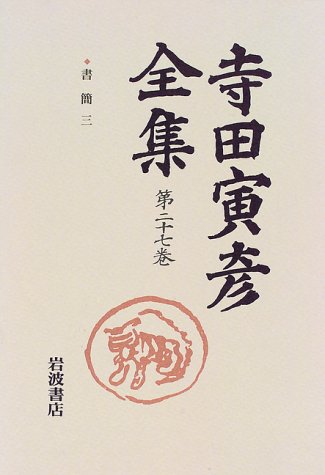 寺田寅彦
全集
第二十七巻
書簡三
岩波書店